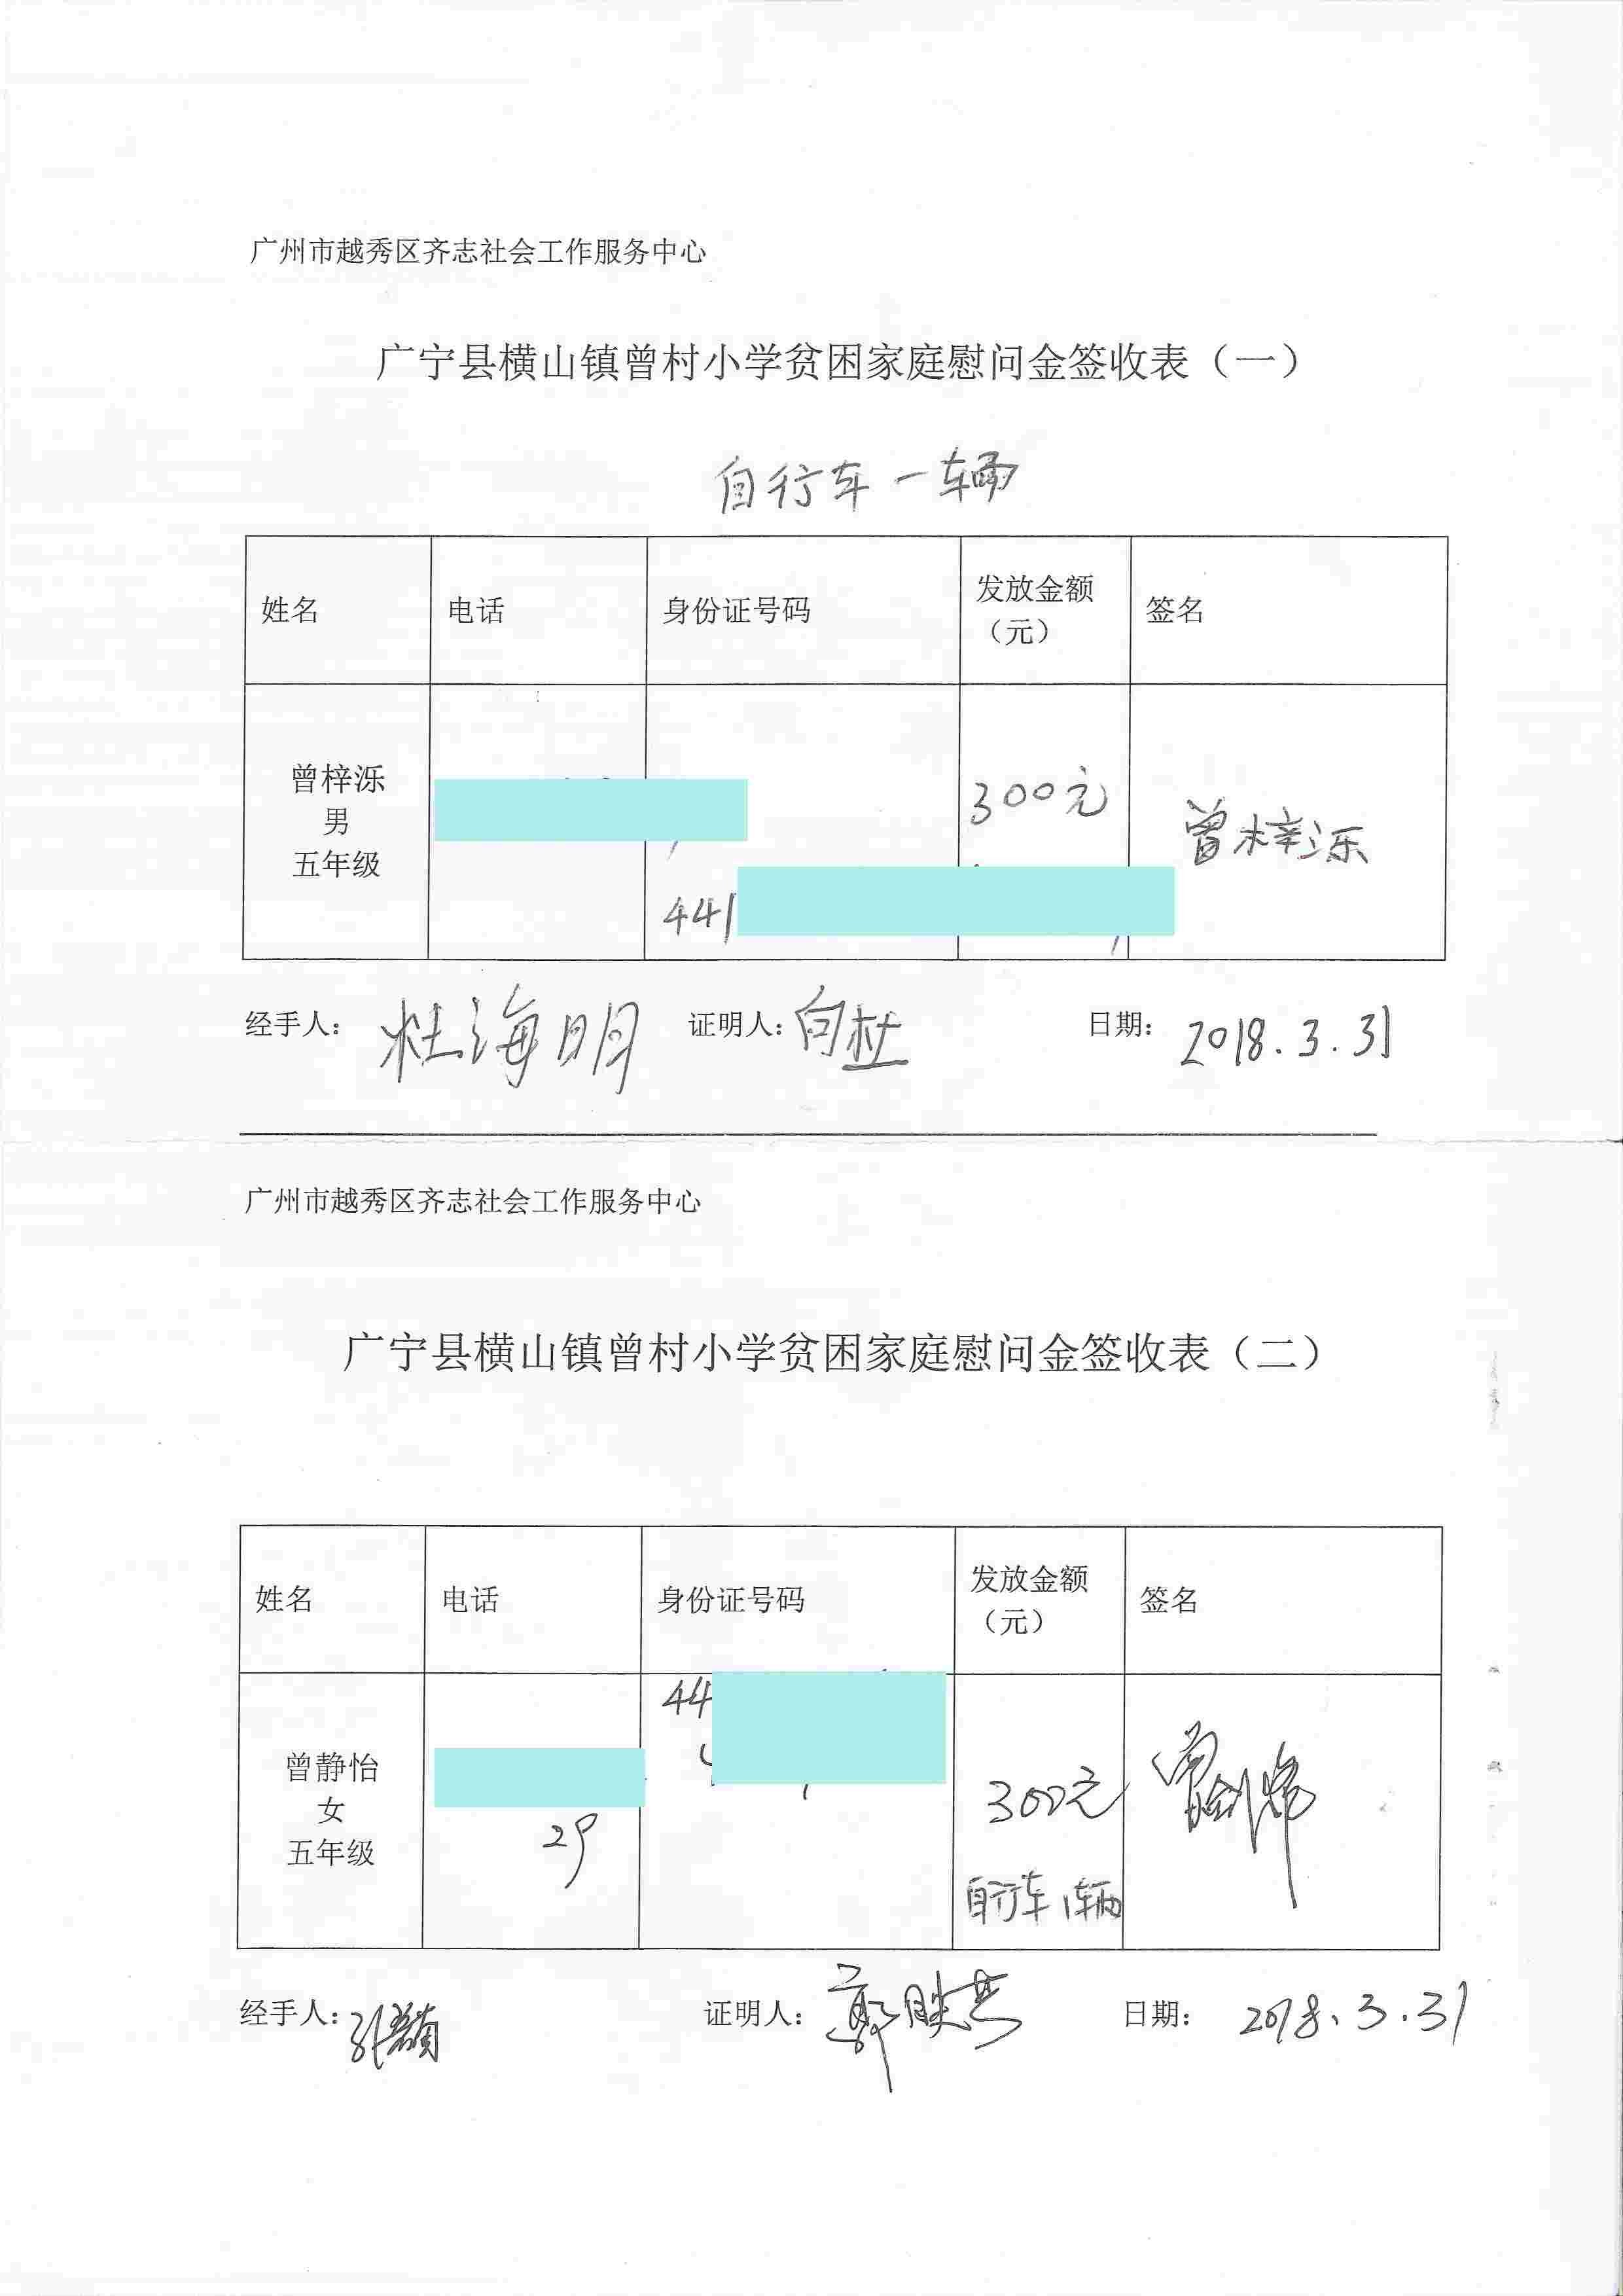 广州市越秀区齐志社会工作服务中心
广宁县横山镇曾村小学贫困家庭慰问金签收表（一）
自行车一辆
姓名 电话 身份证号码 发放金额（元） 签名
曾梓泺
男
五年级
300元
曾梓泺
441
经手人： 杜海明 证明人： 向杜 日期： 2018.3.31
广州市越秀区齐志社会工作服务中心
广宁县横山镇曾村小学贫困家庭慰问金签收表（二）
姓名 电话 身份证号码 发放金额（元） 签名
44
曾静怡
女
五年级
29
300元
自行车1辆
经手人： 证明人： 日期： 2018.3.31